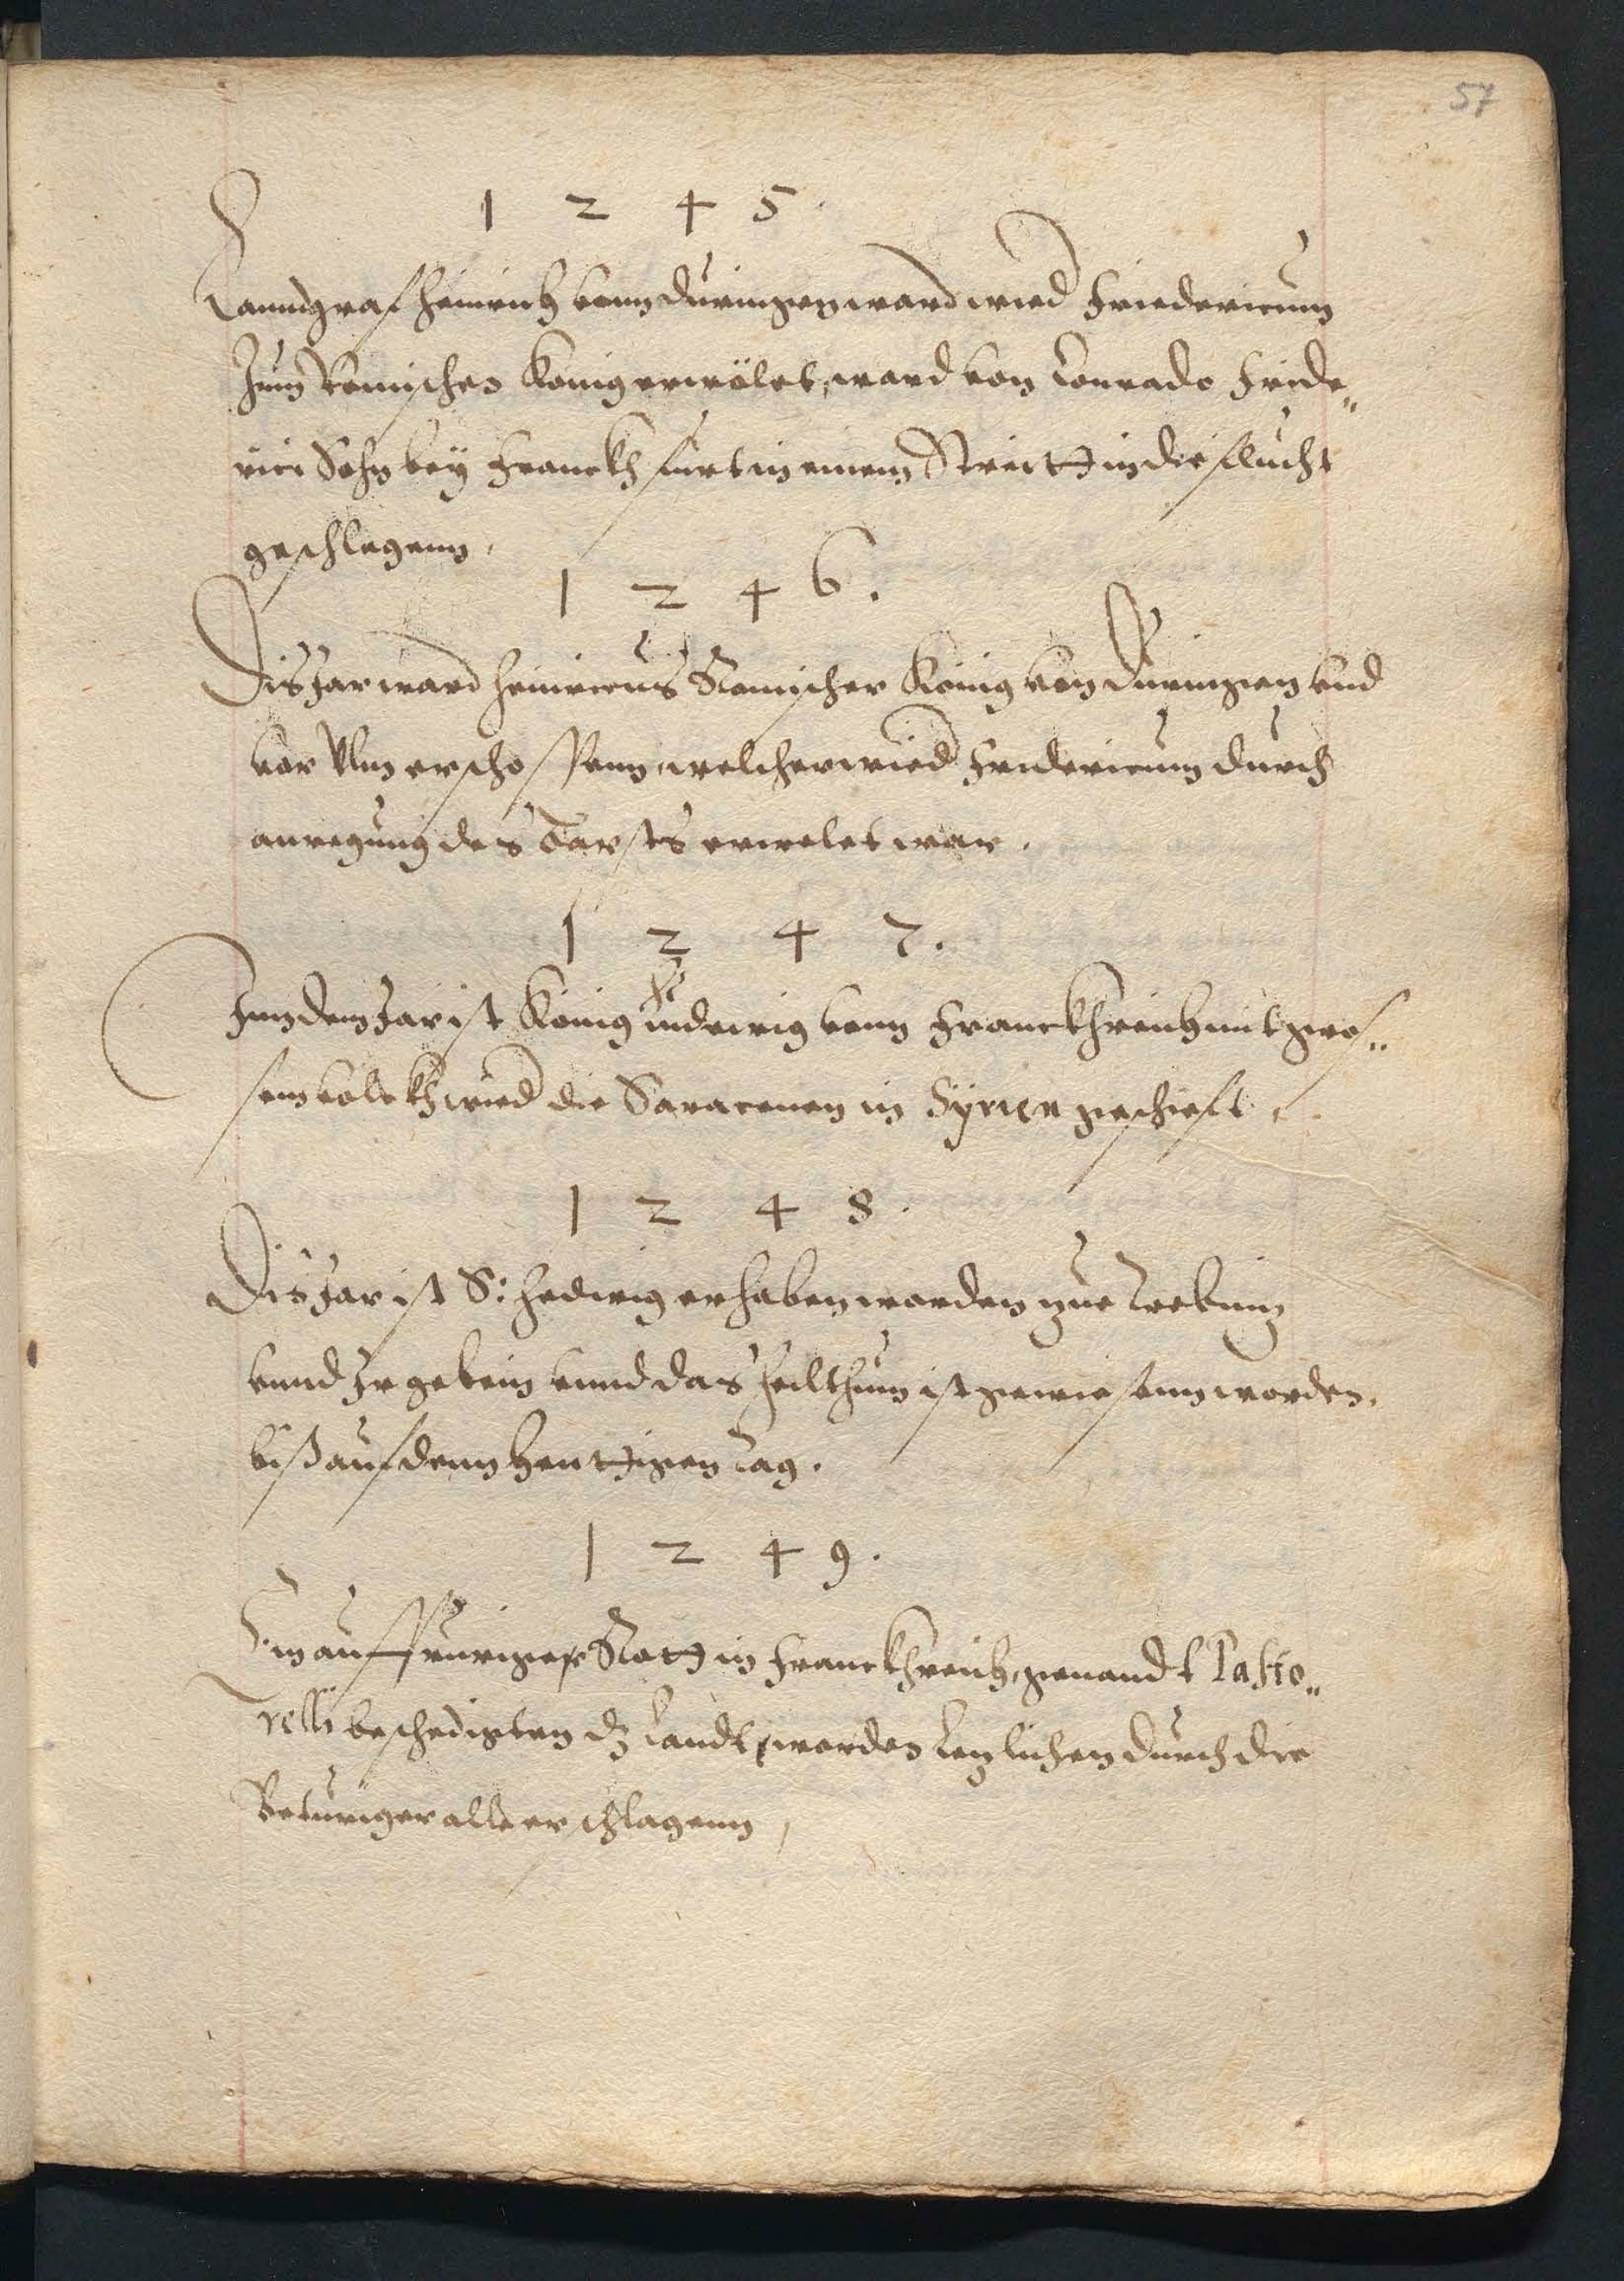 57
1 2 4 5.
Lanndgraf Heinrich vonn Duringen ward wied Friedericum
zum Romischen König erwölet, ward von Conrado Fride„
rici Sohn bey Franckhfurt in einem Streitt in die flucht
geschlagenn.
1 2 4 6.
Dis Jar ward Heinricus Romischer König von Duringen vnd
vor Vlm erschossenn, welcher wied Fridericum durch
anregung des Babsts erwelet war.
1 2 4 7.
Inn dem Jar ist König Ludewig vonn Franckhreich mit gros„
sem volckh wied die Saracenen in Syrien geschift.
1 2 4 8.
Dis Jar ist S: Hedwig erhaben worden zue Trebnitz
vnnd Ir gebein vnnd das Heilthum ist gewiesenn worden.
biß auf denn heuttigen tag.
1 2 4 9.
Ein auffruriges Rott in Franckhreich, genandt Pasto„
relli beschedigten dz Landt, worden letzlichen durch die
Bituriger alle erschlagenn,